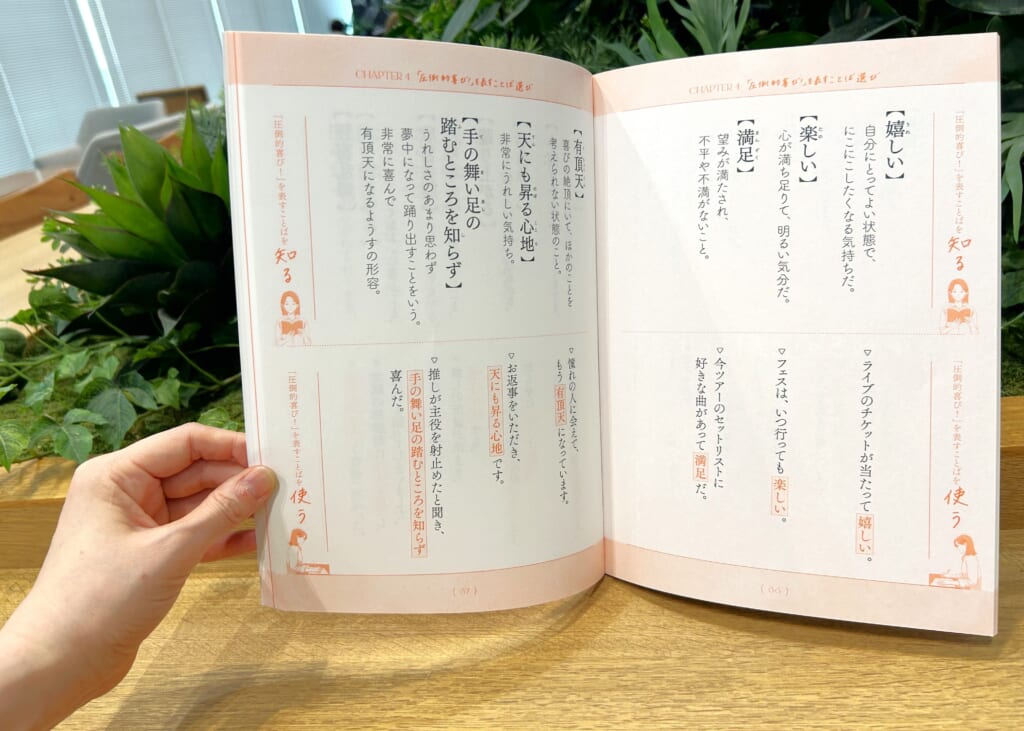 CHAPTER 4 「圧倒的喜び!」を表すことば選び
「圧倒的喜び!」を表すことばを
知る
【嬉しい】
自分にとってよい状態で、
にこにこしたくなる気持ちだ。
【楽しい】
心が満ち足りて、明るい気分だ。
【満足】
望みが満たされ、
不平や不満がないこと。
「圧倒的喜び!」を表すことばを
使う
▽ライブのチケットが当たって嬉しい。
▽フェスは、いつ行っても楽しい。
▽今ツアーのセットリストに
好きな曲があって満足だ。
CHAPTER 4 「圧倒的喜び!」を表すことば選び
【有頂天】
喜びの絶頂にいて、ほかのことを
考えられない状態のこと。
【天にも昇る心地】
非常にうれしい気持ち。
【手の舞い足の
踏むところを知らず】
うれしさのあまり思わず
夢中になって踊り出すことをいう。
非常に喜んで
有頂天になるようすの形容。
「圧倒的喜び!」を表すことばを
知る
▽憧れの人に会えて、
もう有頂天になっています。
▽お返事をいただき、
天にも昇る心地です。
▽推しが主役を射止めたと聞き、
手の舞い足の踏むところを知らず
喜んだ。
「圧倒的喜び!」を表すことばを
使う